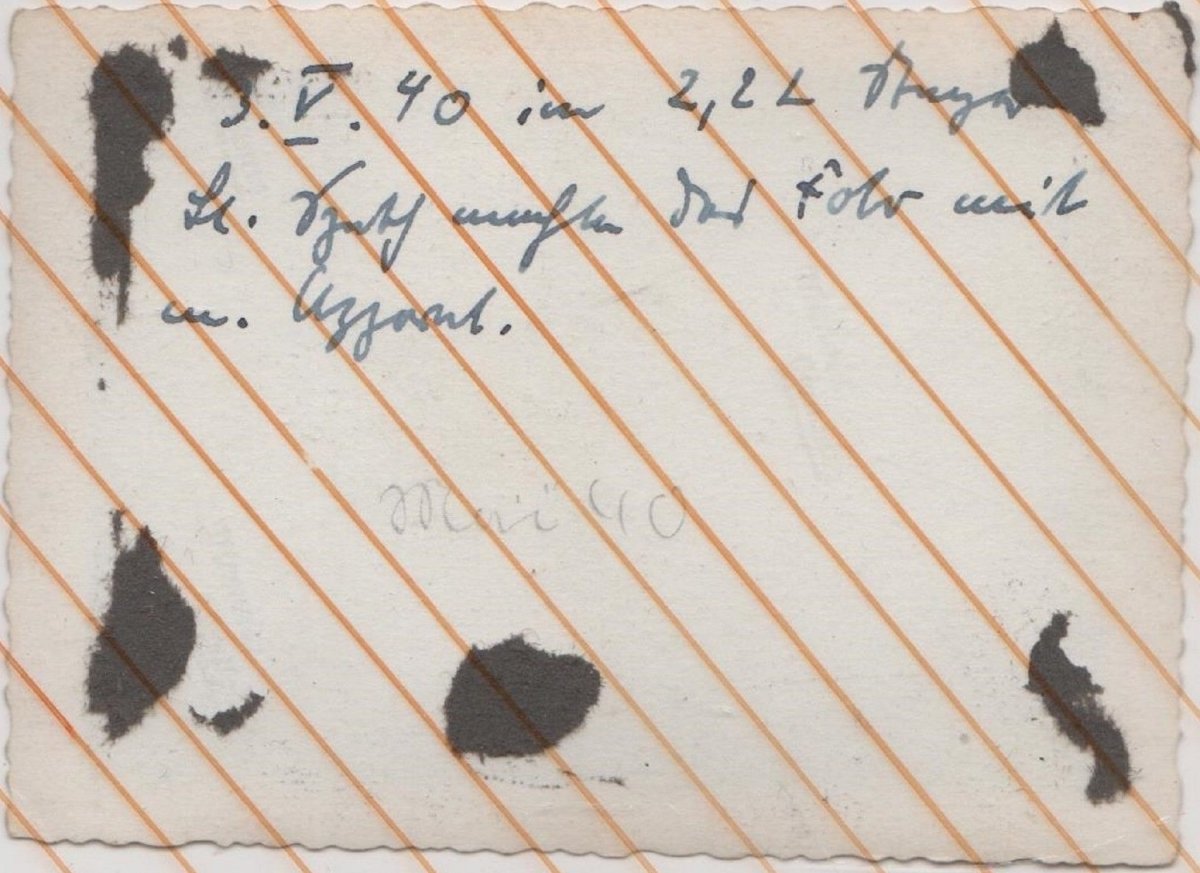 3. V. 40 im 2,2 L Steyr
Lt. Spath machte das Foto mit
m. Apparat.
Mai 40